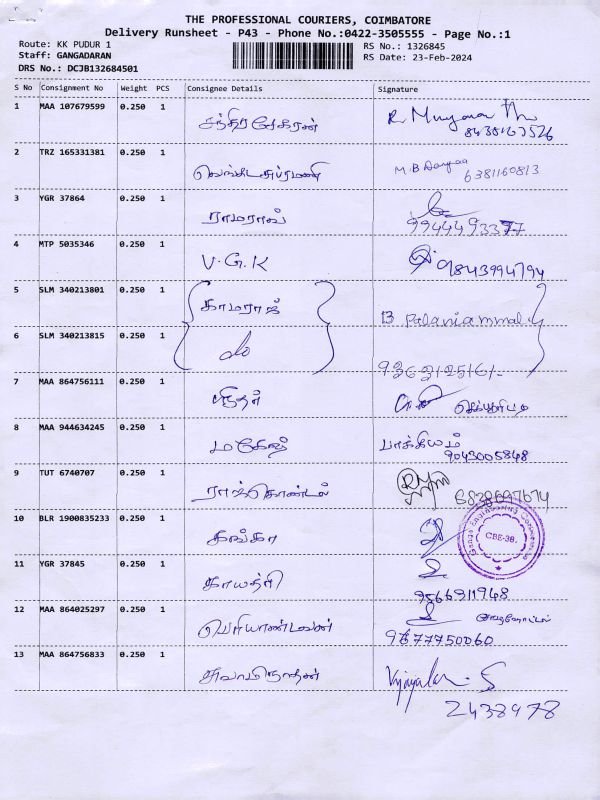 THE PROFESSIONAL COURIERS, COIMBATORE
Delivery Runsheet - P43 - Phone No.:0422-3505555 - Page No.:1
Route: KK PUDUR 1
Staff: GANGADARAN
DRS No.: DCJB132684501
RS No.: 1326845
RS Date: 23-Feb-2024
S No Consignment No Weight PCS Consignee Details Signature
1 MAA 107679599 0.250 1 சந்திரசேகரன்
8438167526
2 TRZ 165331381 0.250 1 வெங்கடசுப்ரமணி
6381160813
3 YGR 37864 0.250 1 ராமராவ்
9944493377
4 MTP 5035346 0.250 1 V.G.K 9843994794
5 SLM 340213801 0.250 1 காமராஜ் Palaniammal
6 SLM 340213815 0.250 1 do
7 MAA 864756111 0.250 1
8 MAA 944634245 0.250 1 மகேஷ் பாக்கியம்
9043005848
9 TUT 6740707 0.250 1 6838697674
10 BLR 1900835233 0.250 1 கங்கா
CBE-38.
11 YGR 37845 0.250 1 காயத்ரி
9566911948
12 MAA 864025297 0.250 1 பெரியாண்டவன்
9677750060
13 MAA 864756833 0.250 1 சுவாமிநாதன்
2438978